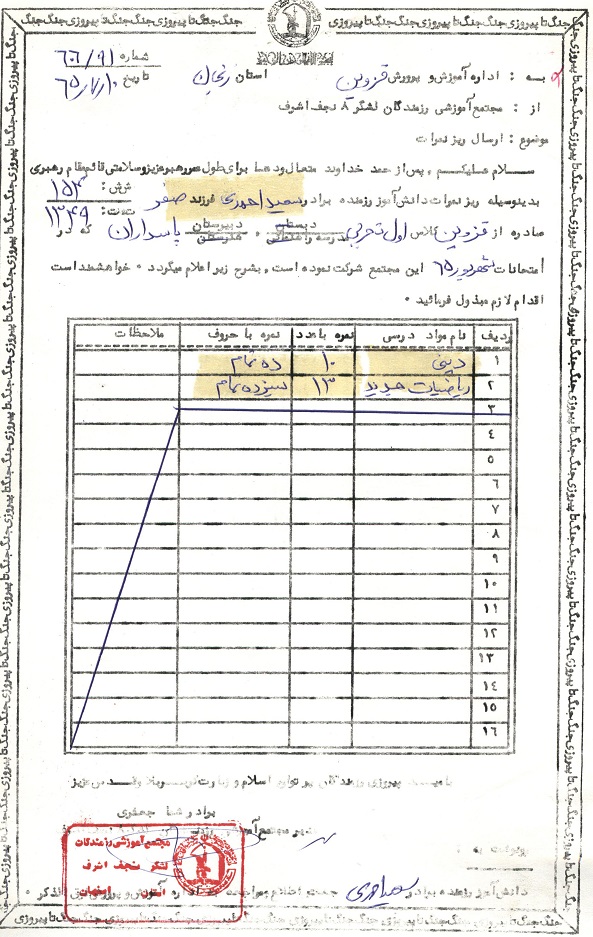 جنگ جنگ تا پیروزی جنگ جنگ تا پیروزی جنگ جنگ تا پیروزی
شماره ۶۶/۹۱
به : اداره آموزش و پرورش قزوین استان زنجان تاریخ ۶۵/۷/۱۰
از : مجتمع آموزشی رزمندگان لشگر ۸ نجف اشرف
موضوع : ارسال ریز نمرات
سلام علیکم ، پس از حمد خداوند متعال و دعا برای طول عمر رهبر عزیز و سلامتی قائم مقام رهبری
بدینوسیله ریز نمرات دانش آموز رزمنده برادر سعید احمدی فرزند صفر ش‌ش : ۱۵۴
صادره از قزوین کلاس اول تجربی دبستان مدرسه راهنمائی ، دبیرستان هنرستان پاسداران که در ت‌ت : ۱۳۴۹
امتحانات شهریور ۶۵ این مجتمع شرکت نموده است ، بشرح زیر اعلام میگردد ٠ خواهشمند است
اقدام لازم مبذول فرمائید ٠
ردیف نام مواد درسی نمره با عدد نمره با حروف ملاحظات
۱ دینی ۱۰ ده تمام
۲ ریاضیات جدید ۱۳ سیزده تمام
۳
۴
۵
۶
۷
۸
۹
۱۰
۱۱
۱۲
۱۳
۱۴
۱۵
۱۶
پیروزی رزمندگان اسلام و زیارت
برادر رضا جعفری
مجتمع آموزشی رزمندگان
لشگر نجف اشرف
استان اصفهان
رونوشت به :
دانش آموز رزمنده برادر سعید احمدی جهت اطلاع و مراجعه اداره آموزش و پرورش فوق الذکر ٠
جنگ جنگ تا پیروزی جنگ جنگ تا پیروزی جنگ جنگ تا پیروزی